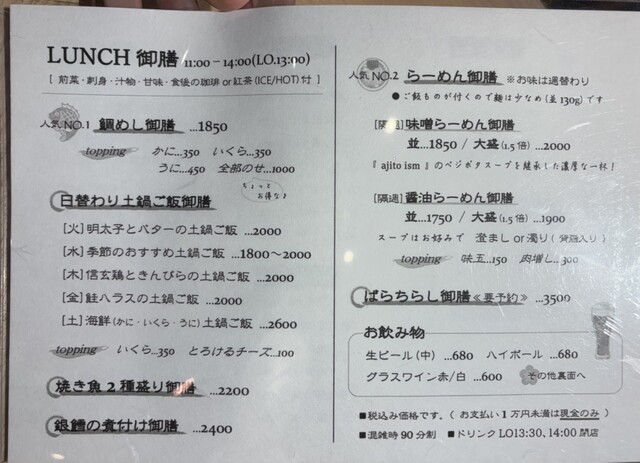 LUNCH 御膳 11:00 – 14:00(LO.13:00)
[ 前菜・刺身・汁物・甘味・食後の珈琲 or 紅茶 (ICE/HOT) 付 ]
人気 NO.1 鯛めし御膳 ...1850
topping かに...350 いくら...350
うに...450 全部のせ...1000
ちょっとお得な♪
日替わり土鍋ご飯御膳
[火] 明太子とバターの土鍋ご飯 ...2000
[水] 季節のおすすめ土鍋ご飯 ...1800〜2000
[木] 信玄鶏ときんぴらの土鍋ご飯 ...2000
[金] 鮭ハラスの土鍋ご飯 ...2000
[土] 海鮮 (かに・いくら・うに) 土鍋ご飯 ...2600
topping いくら...350 とろけるチーズ...100
焼き魚2種盛り御膳 ...2200
銀鱈の煮付け御膳 ...2400
人気 NO.2 らーめん御膳 ※お味は週替わり
●ご飯ものが付くので麺は少なめ (並 130g) です
[隔週] 味噌らーめん御膳
並...1850 / 大盛 (1.5 倍) ...2000
『 ajito ism 』のベジポタスープを継承した濃厚な一杯!
[隔週] 醤油らーめん御膳
並...1750 / 大盛 (1.5 倍) ...1900
スープはお好みで 澄まし or 濁り (背脂入り)
topping 味玉...150 肉増し...300
ばらちらし御膳 ≪要予約≫ ...3500
お飲み物
生ビール (中) ...680 ハイボール ...680
グラスワイン赤/白 ...600 その他裏面へ
■税込み価格です。( お支払い1万円未満は現金のみ )
■混雑時 90 分制 ■ドリンク LO13:30, 14:00 閉店